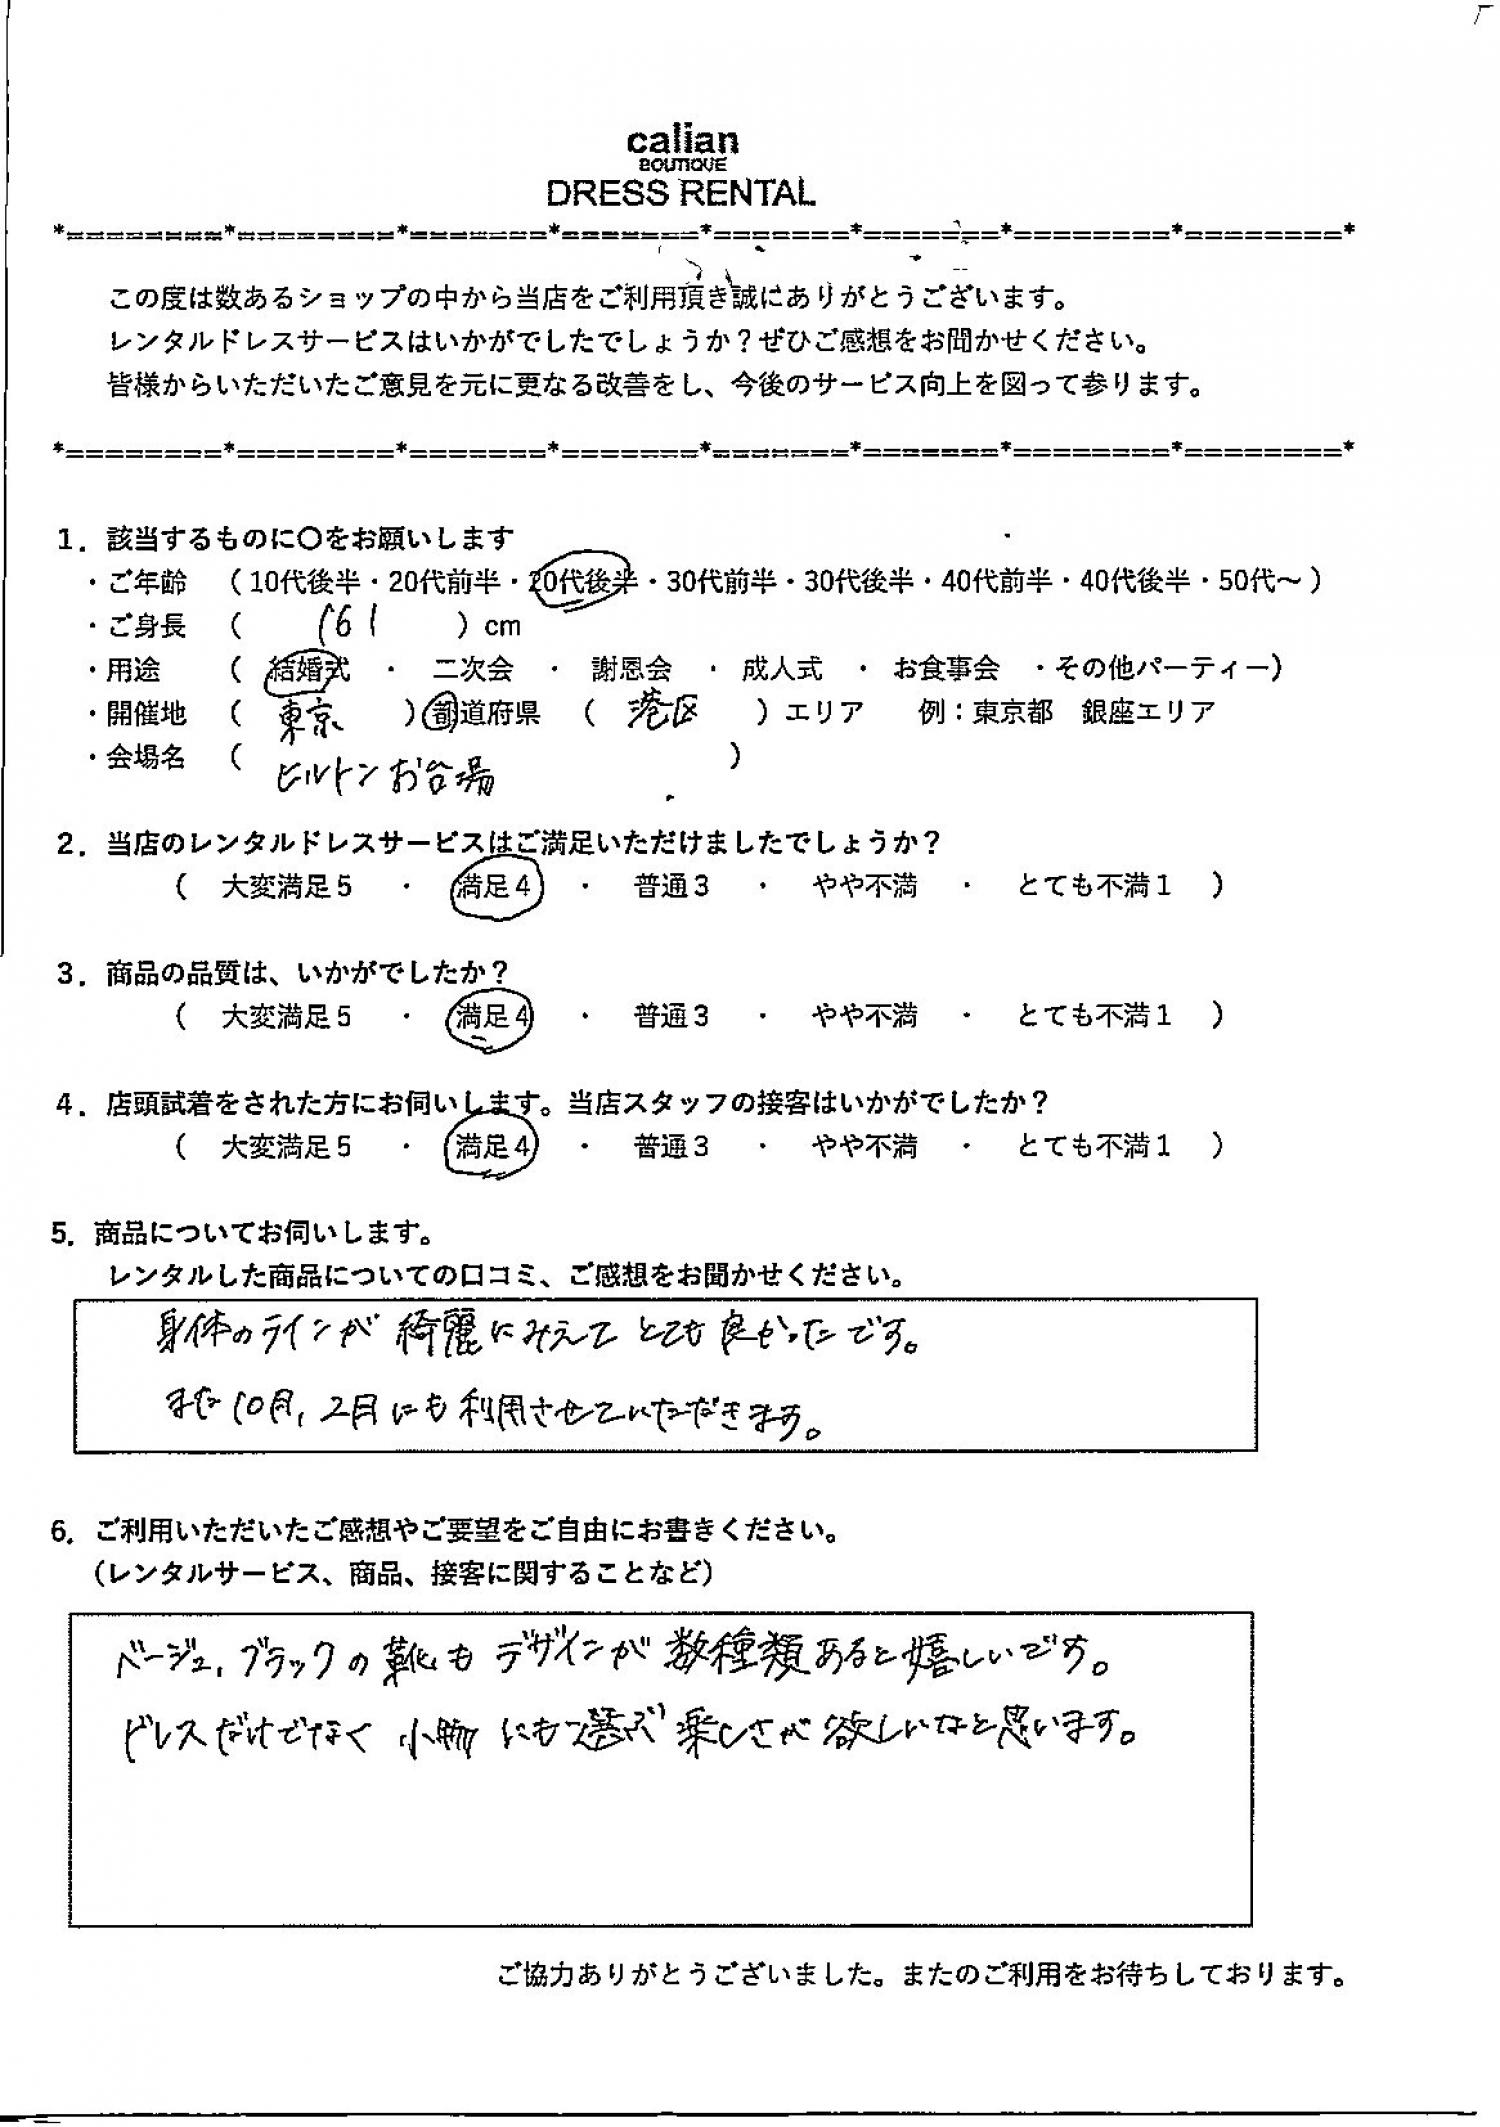 calian
BOUTIQUE
DRESS RENTAL
*========*========*=======*=======*=======*=======*========*========*
この度は数あるショップの中から当店をご利用頂き誠にありがとうございます。
レンタルドレスサービスはいかがでしたでしょうか？ぜひご感想をお聞かせください。
皆様からいただいたご意見を元に更なる改善をし、今後のサービス向上を図って参ります。
*========*========*=======*=======*=======*=======*========*========*
1．該当するものに〇をお願いします
・ご年齢　（ 10代後半・20代前半・20代後半・30代前半・30代後半・40代前半・40代後半・50代～ ）
・ご身長　（　161　）cm
・用途　（　結婚式　・　二次会　・　謝恩会　・　成人式　・　お食事会　・その他パーティー）
・開催地　（　東京　）都道府県　（　港区　）エリア　例：東京都　銀座エリア
・会場名　（　ヒルトンお台場　）
2．当店のレンタルドレスサービスはご満足いただけましたでしょうか？
（　大変満足５　・　満足４　・　普通３　・　やや不満　・　とても不満１　）
3．商品の品質は、いかがでしたか？
（　大変満足５　・　満足４　・　普通３　・　やや不満　・　とても不満１　）
4．店頭試着をされた方にお伺いします。当店スタッフの接客はいかがでしたか？
（　大変満足５　・　満足４　・　普通３　・　やや不満　・　とても不満１　）
5．商品についてお伺いします。
レンタルした商品についての口コミ、ご感想をお聞かせください。
身体のラインが綺麗にみえてとても良かったです。
また10月，2月にも利用させていただきます。
6．ご利用いただいたご感想やご要望をご自由にお書きください。
（レンタルサービス、商品、接客に関することなど）
ベージュ，ブラックの靴もデザインが数種類あると嬉しいです。
ドレスだけでなく小物にも選ぶ楽しさが欲しいなと思います。
ご協力ありがとうございました。またのご利用をお待ちしております。